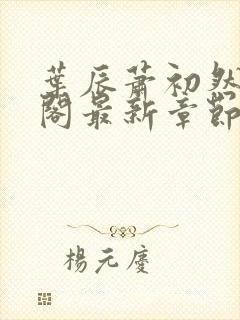 葉辰蕭初然
閣最新章節
楊元慶